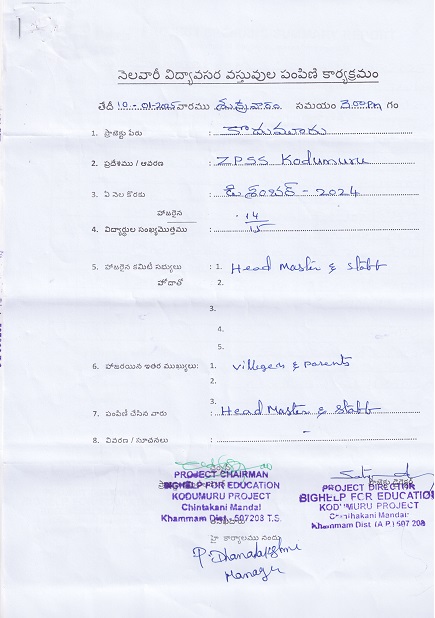 నెలవారీ విద్యావసర వస్తువుల పంపిణి కార్యక్రమం
తేదీ 10-01-2025 వారము శుక్రవారం సమయం 3.00 PM గం
1. ప్రాజెక్టు పేరు : కొదుమూరు
2. ప్రదేశము / ఆవరణ : ZPSS Kodumuru
3. ఏ నెల కొరకు : డిశంబర్ - 2024
హాజరైన 14
4. విద్యార్థుల సంఖ్య/మొత్తము : 15
5. హాజరైన కమిటి సభ్యులు : 1. Head Master & Staff
హోదాతో 2.
3.
4.
5.
6. హాజరయిన ఇతర ముఖ్యులు: 1. villegers & parents
2.
3.
7. పంపిణి చేసిన వారు : Head Master & Staff
8. వివరణ / సూచనలు : -
PROJECT CHAIRMAN
BIGHELP FOR EDUCATION
KODUMURU PROJECT
Chintakani Mandal
Khammam Dist. 507208 T.S.
PROJECT DIRECTOR
BIGHELP FOR EDUCATION
KODUMURU PROJECT
Chinthakani Mandal
Khammam Dist (A.P) 507 208
హై కార్యాలము నందు
P. Dhanalakshmi
Manager